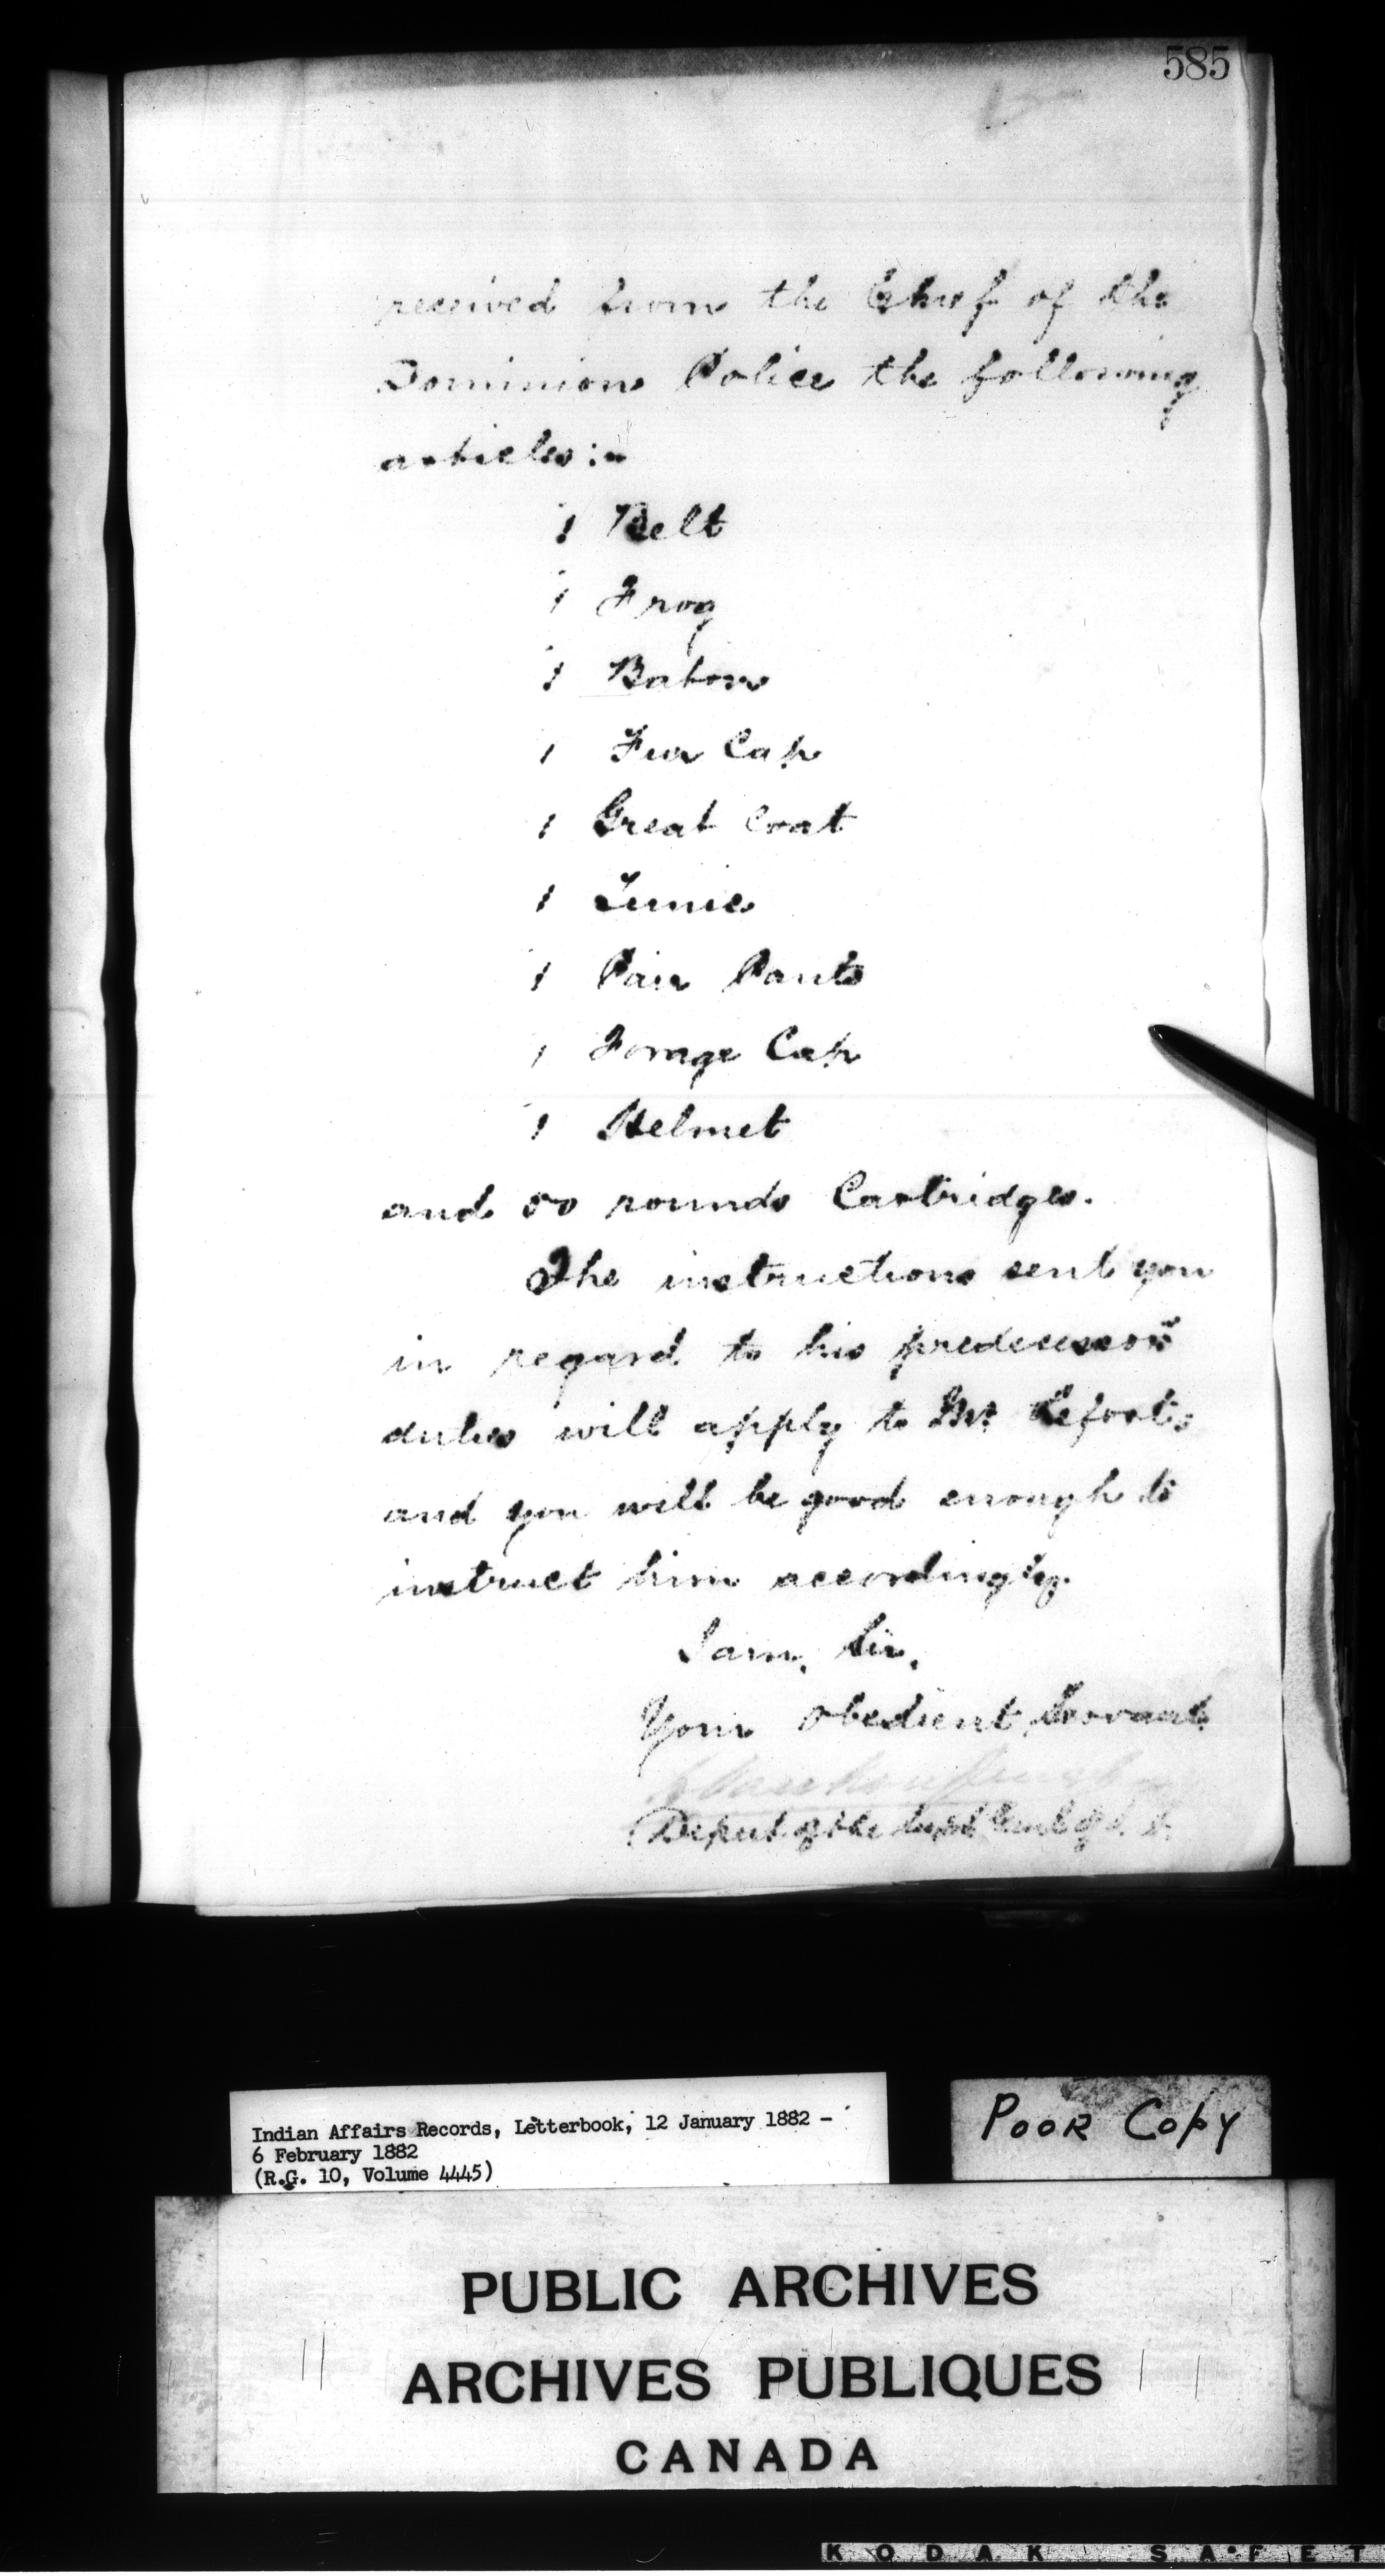 585
received from the Chief of the
Dominion Police the following
articles:-
1 Belt
1 Frog
1 Baton
1 Fur Cap
1 Great Coat
1 Tunic
1 Pair Pants
1 Forage Cap
1 Helmet
and 50 rounds Cartridges.
The instructions sent you
in regard to his predecessor's
duties will apply to Mr.
and you will be good enough to
instruct him accordingly.
I am, Sir,
Your obedient Servant
Deputy of the Supt Genl of I. A.
Indian Affairs Records, Letterbook, 12 January 1882 -
6 February 1882
(R.G. 10, Volume 4445)
POOR COPY
PUBLIC ARCHIVES
ARCHIVES PUBLIQUES
CANADA
KODAK SAFET